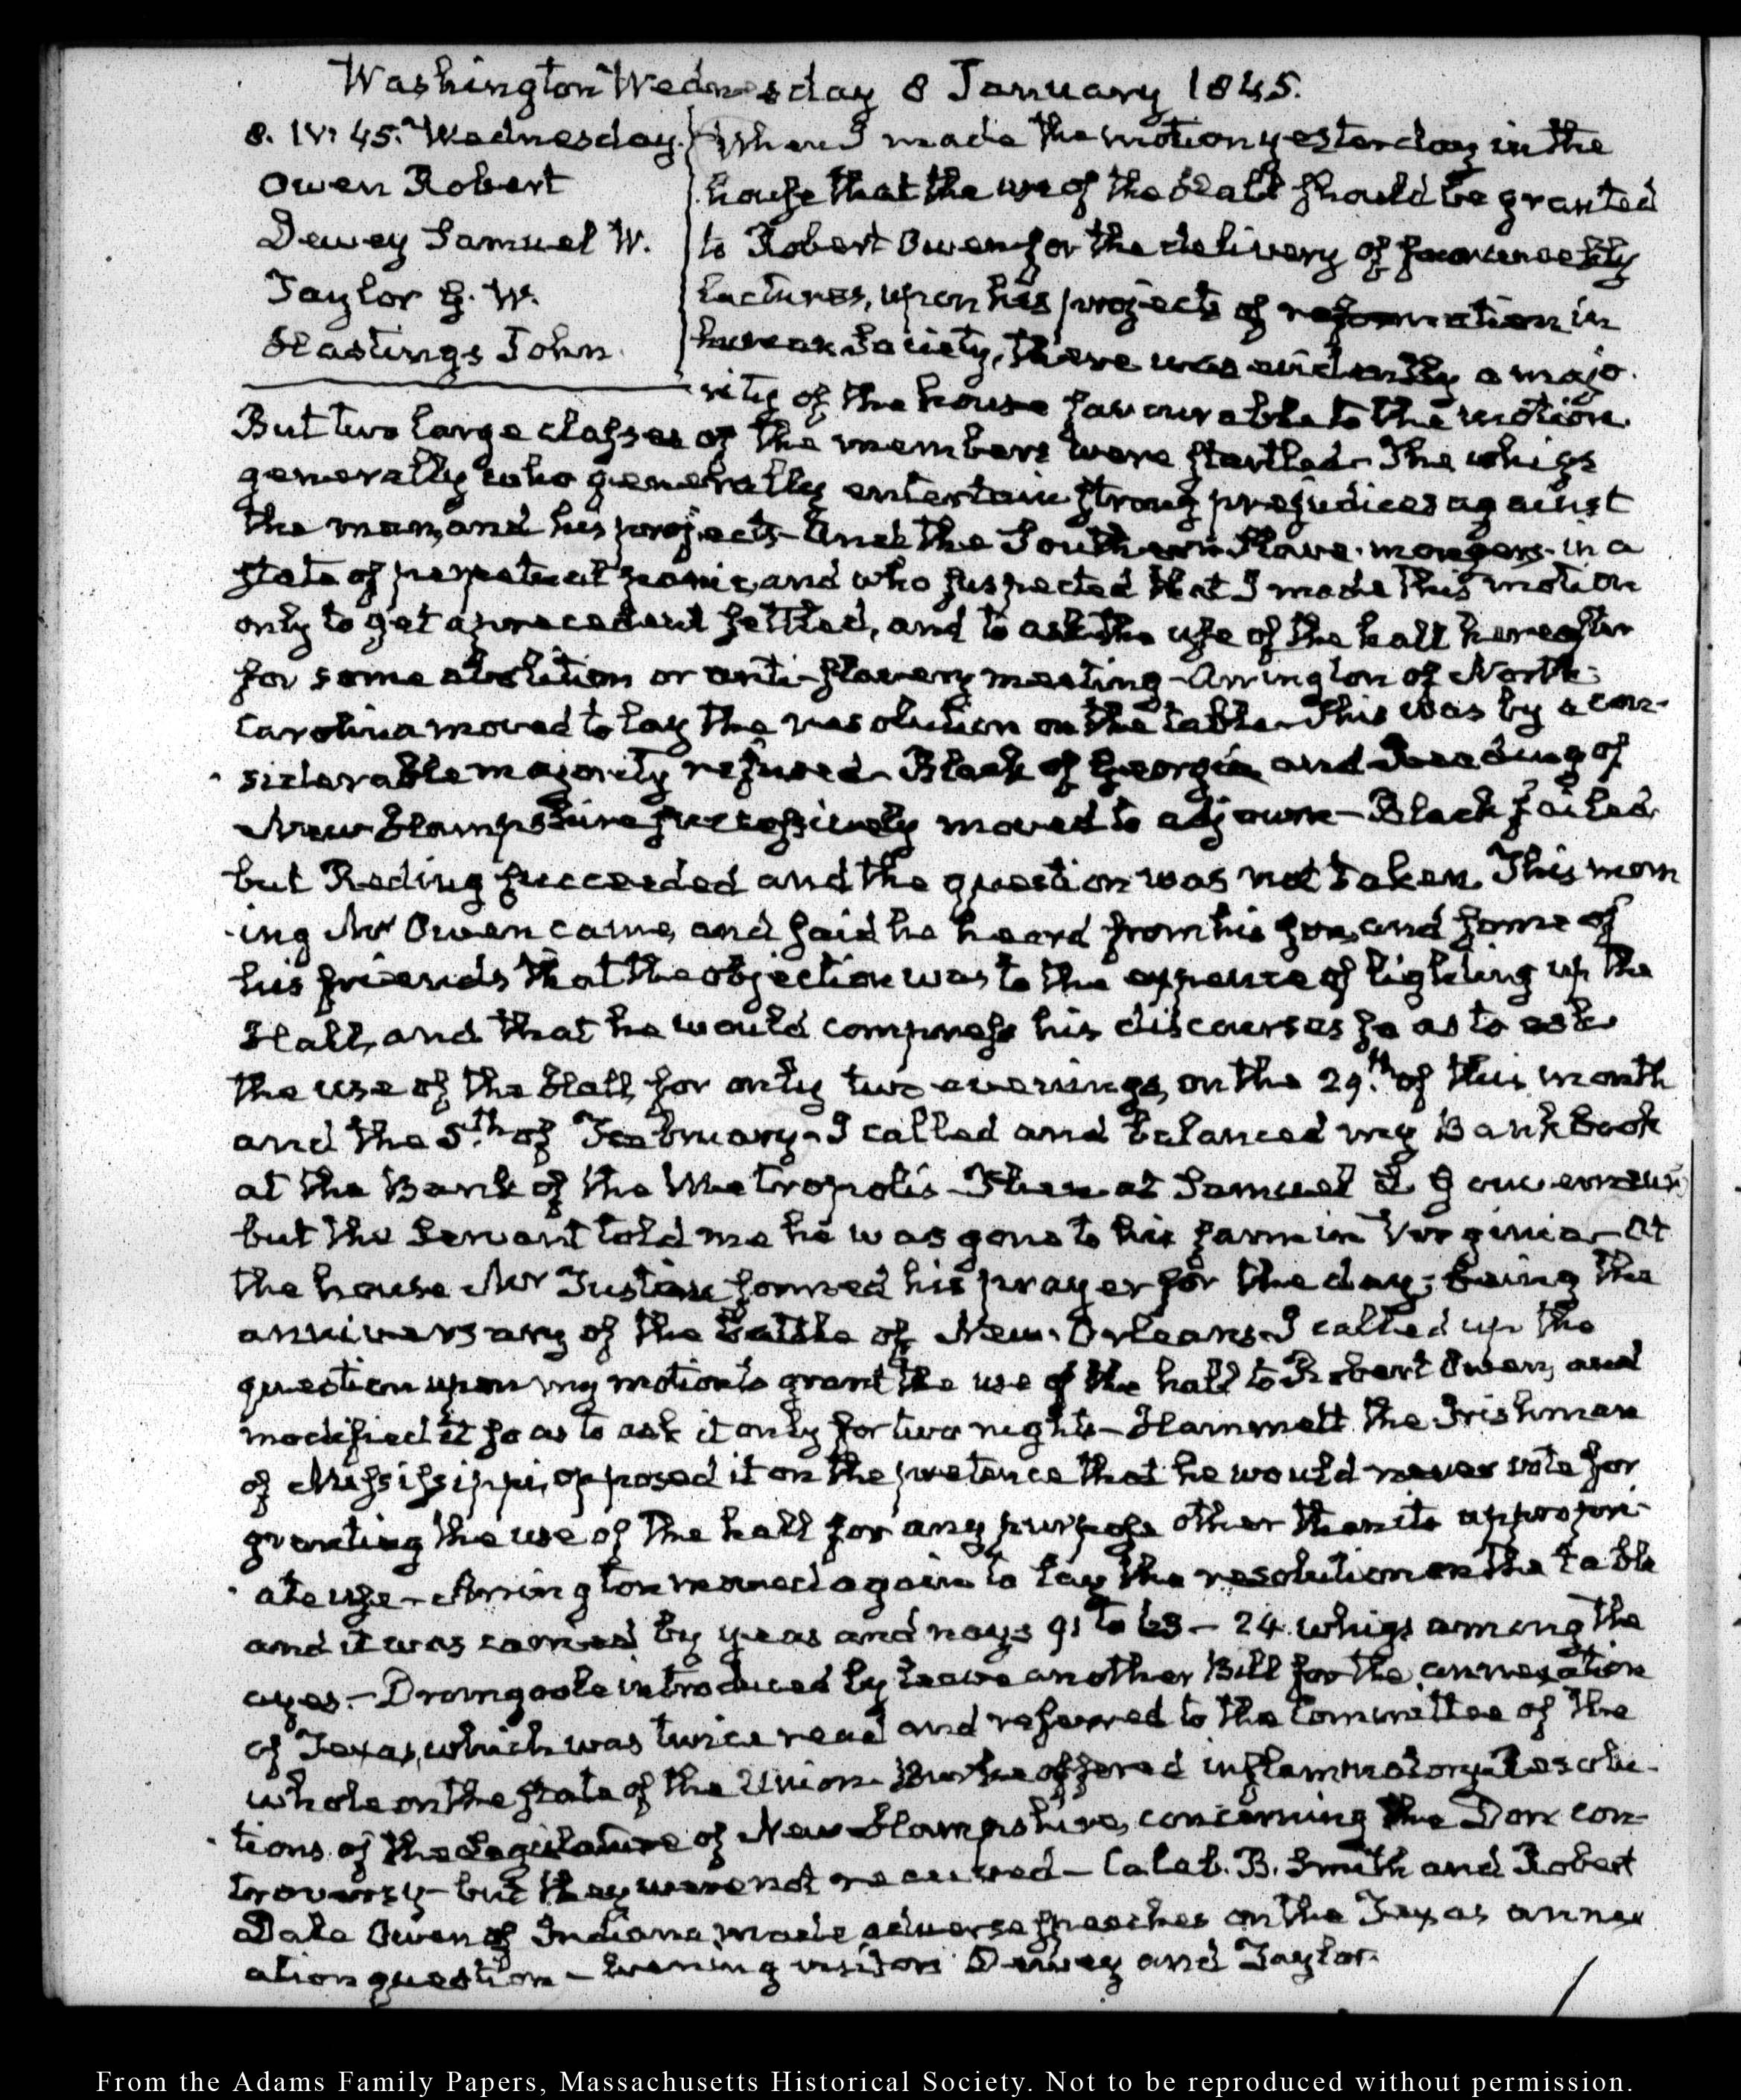 Washington Wednesday 8 January 1845.
8. IV: 45. Wednesday.
Owen Robert
Dewey Samuel W.
Taylor G. W.
Hastings John.
When I made the motion yesterday in the
house that the use of the Hall should be granted
to Robert Owen for the delivery of
lectures, upon his projects of reformation in
human Society, there was evidently a majo-
rity of the house favourable to the motion.
But two large classes of the members were startled. The whigs
generally who generally entertain strong prejudices against
the man, and his projects – And the Southern Slave-mongers in a
state of perpetual panic, and who suspected that I made this motion
only to get a precedent settled, and to ask the use of the hall hereafter
for some abolition or anti-slavery meeting – Arrington of North-
Carolina moved to lay the resolution on the table – This was by a con-
siderable majority refused – Black of Georgia and Reding of
New Hampshire successively moved to adjourn – Black failed
but Reding succeeded and the question was not taken. This morn
-ing Mr Owen came, and said he heard from his son, and some of
his friends that the objection was to the expence of lighting up the
Hall, and that he would compress his discourses so as to ask
the use of the Hall, for only two evenings, on the 29.th of this month
and the 5.th of February – I called and balanced my Bank book
at the Bank of the Metropolis – Then at Samuel L Gouverneur's
but the servant told me he was gone to his farm in Virginia – At
the house Mr Tustin formed his prayer for the day; being the
anniversary of the battle of New-Orleans – I called up the
question upon my motion to grant the use of the hall to Robert Owen, and
modified it so as to ask it only for two nights – Hammett the Irishman
of Mississippi, opposed it on the pretence that he would never vote for
granting the use of the hall for any purpose other than its appropri-
ate use – Arrington moved again to lay the resolution on the table
and it was carried by yeas and nays 91 to 63 – 24 whigs among the
ayes. – Dromgoole introduced by leave another Bill for the annexation
of Texas, which was twice read and referred to the Committee of the
whole on the state of the Union – Burke offered inflammatory Resolu-
tions of the Legislature of New Hampshire, concerning the Dorr con-
troversy – but they were not received – Caleb. B. Smith and Robert
Dale Owen of Indiana, made adverse speeches on the Texas annex
ation question – Evening visitors Dewey and Taylor.
From the Adams Family Papers, Massachusetts Historical Society. Not to be reproduced without permission.